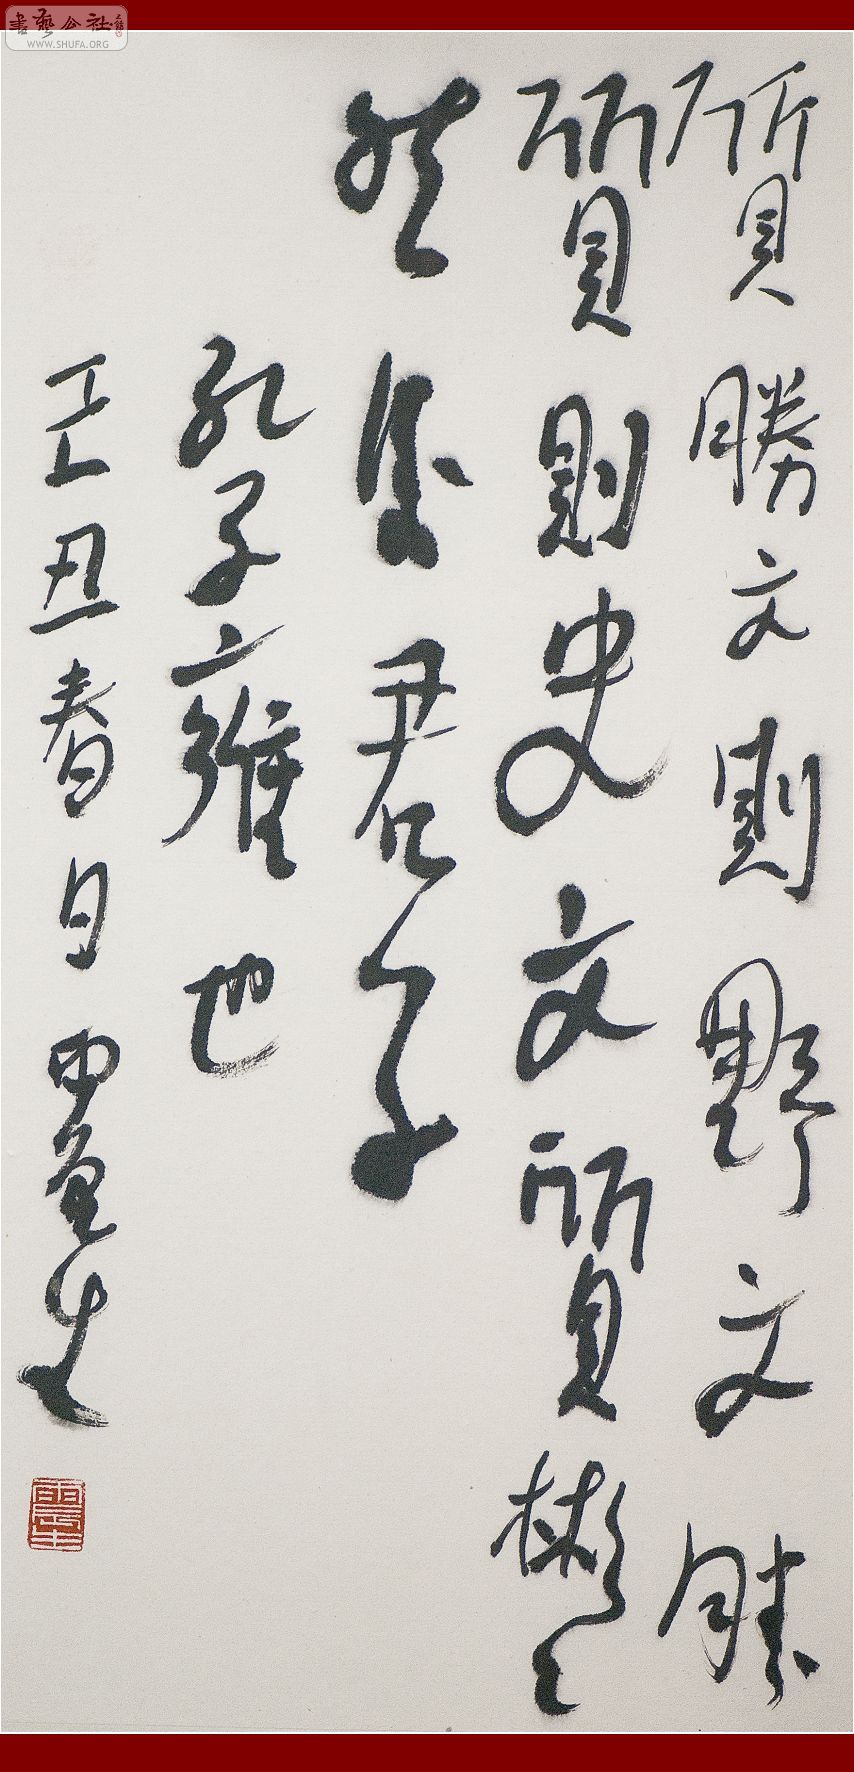 書藝公社
WWW.SHUFA.ORG
質勝文則野文勝
質則史文質彬彬
然後君子
孔子雍也
丑春日生